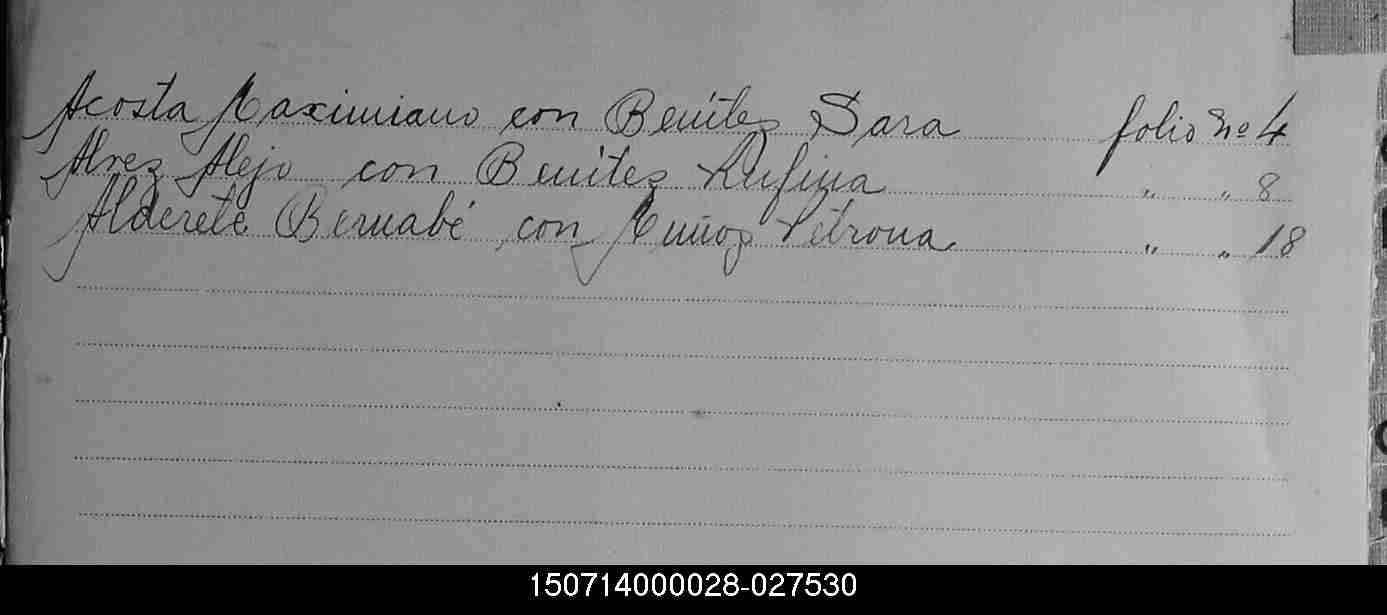 Acosta Maximiano con Benítez Sara folio no 4
Alvez Alejo con Benítez Rufina " " 8
Alderete Bernabé con Muñoz Petrona " " 18
150714000028-027530